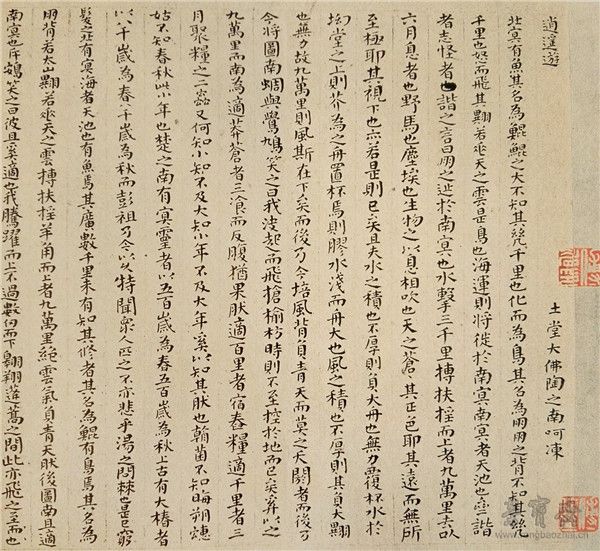 逍遙遊
土堂大佛陶之南呵凍
北冥有魚其名為鯤鯤之大不知其幾千里也化而為鳥其名為鵬鵬之背不知其幾
千里也怒而飛其翼若垂天之雲是鳥也海運則將徙於南冥南冥者天池也齊諧
者志怪者也諧之言曰鵬之徙於南冥也水擊三千里摶扶搖而上者九萬里去以
六月息者也野馬也塵埃也生物之以息相吹也天之蒼蒼其正色耶其遠而無所
至極耶其視下也亦若是則已矣且夫水之積也不厚則負大舟也無力覆杯水於
坳堂之上則芥為之舟置杯焉則膠水淺而舟大也風之積也不厚則其負大翼
也無力故九萬里則風斯在下矣而後乃今培風背負青天而莫之夭閼者而後乃
今將圖南蜩與鷽鳩笑之曰我決起而飛搶榆枋時則不至控於地而已矣奚以之
九萬里而南為適莽蒼者三飡而反腹猶果然適百里者宿舂糧適千里者三
月聚糧之二蟲又何知小知不及大知小年不及大年奚以知其然也朝菌不知晦朔蟪
蛄不知春秋此小年也楚之南有冥靈者以五百歲為春五百歲為秋上古有大椿者
以八千歲為春八千歲為秋而彭祖乃今以久特聞眾人匹之不亦悲乎湯之問棘也是已窮
髮之北有冥海者天池也有魚焉其廣數千里未有知其修者其名為鯤有鳥焉其名為
鵬背若太山翼若垂天之雲摶扶搖羊角而上者九萬里絕雲氣負青天然後圖南且適
南冥也斥鴳笑之曰彼且奚適也我騰躍而上不過數仞而下翱翔蓬蒿之間此亦飛之至也